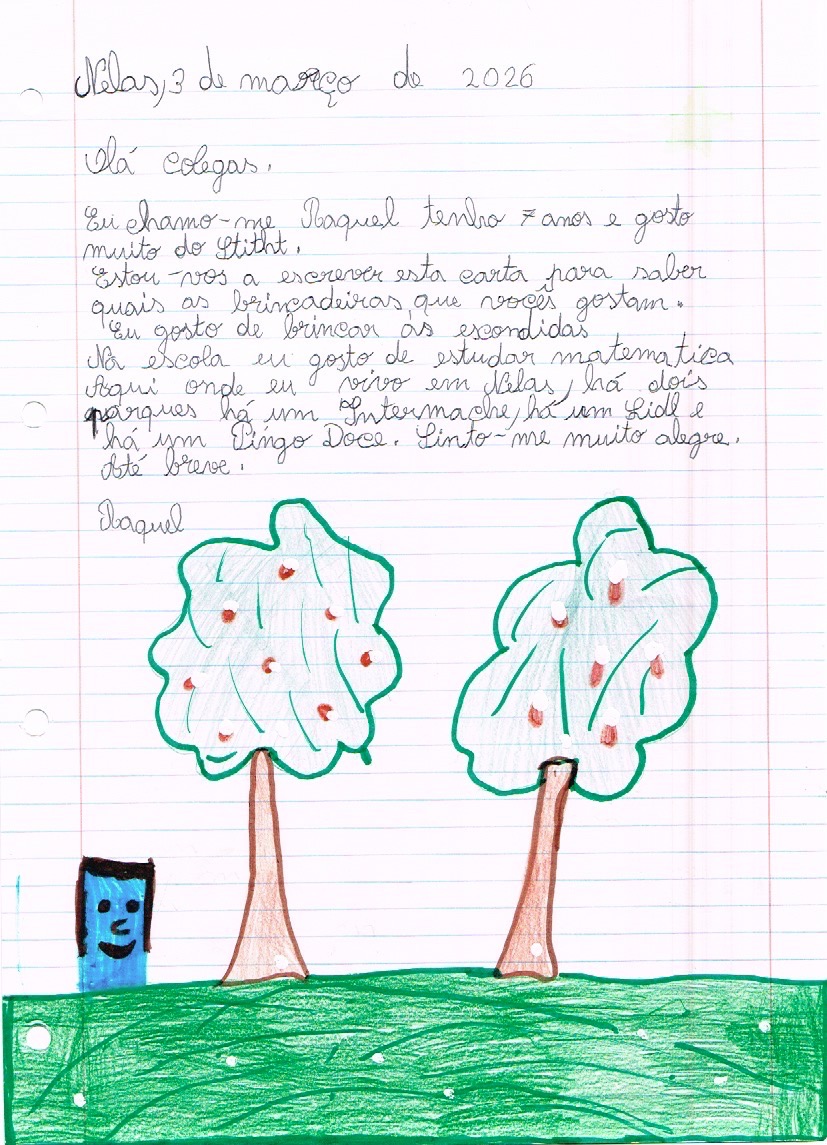 Nelas, 3 de março de 2026
Olá colegas.
Eu chamo-me Raquel tenho 7 anos e gosto
muito do Stitht.
Estou-vos a escrever esta carta para saber
quais as brincadeiras, que vocês gostam.
Eu gosto de brincar às escondidas
Na escola eu gosto de estudar matematica
Aqui onde eu vivo em Nelas, há dois
parques há um Intermache, há um Lidl e
há um Pingo Doce. Sinto-me muito alegre.
Até breve.
Raquel